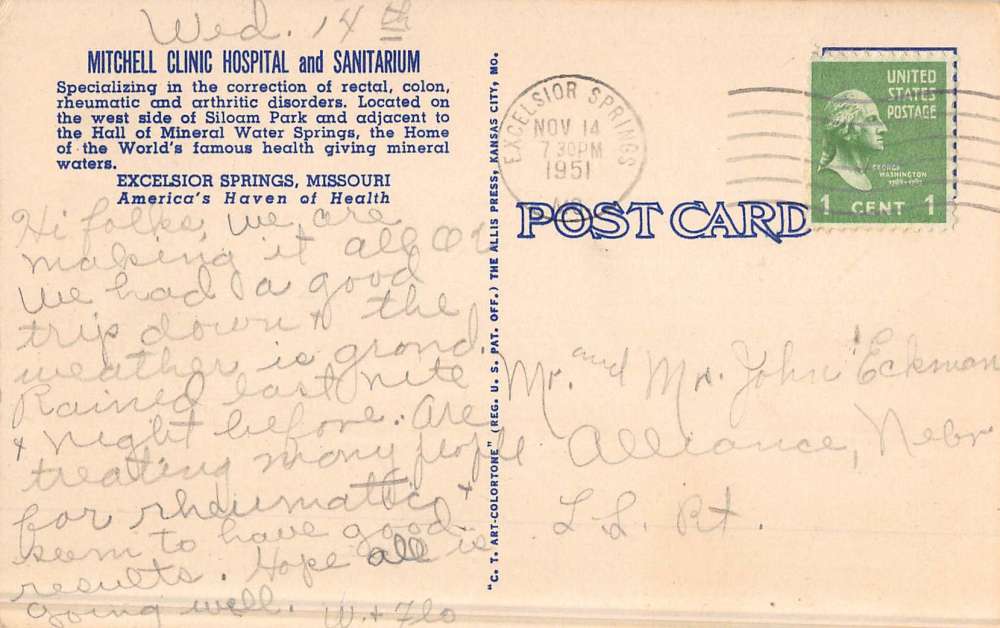 Wed. 14th
MITCHELL CLINIC HOSPITAL and SANITARIUM
Specializing in the correction of rectal, colon,
rheumatic and arthritic disorders. Located on
the west side of Siloam Park and adjacent to
the Hall of Mineral Water Springs, the Home
of the World's famous health giving mineral
waters.
EXCELSIOR SPRINGS, MISSOURI
America's Haven of Health
Hi folks, we are
making it all OK
We had a good
trip down & the
weather is grand.
Rained last nite
& night before. Are
treating many people
for rheumattic &
seem to have good
results. Hope all is
going well. W. & Flo
"C. T. ART-COLORTONE" (REG. U. S. PAT. OFF.) THE ALLIS PRESS, KANSAS CITY, MO.
EXCELSIOR SPRINGS
NOV 14
7 30PM
1951
MO.
UNITED
STATES
POSTAGE
GEORGE
WASHINGTON
1789-1797
1 CENT 1
POST CARD
Mr. and Mrs. John Eckman
Alliance, Nebr
L. L. Rt.